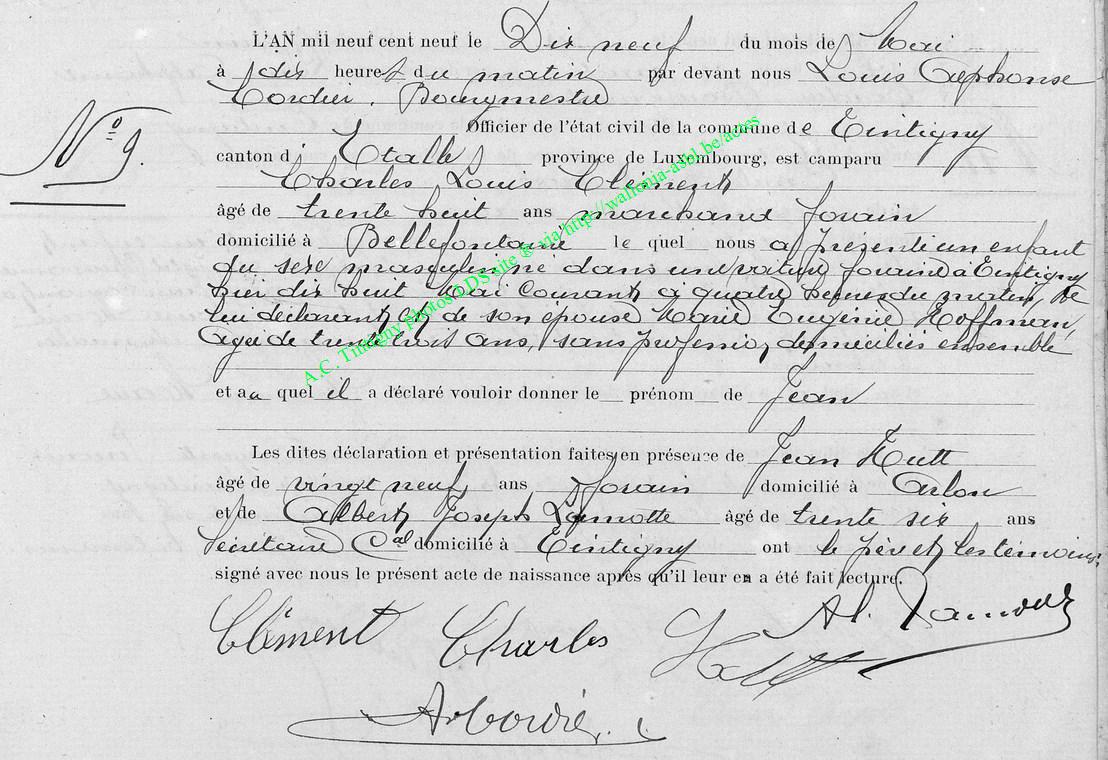 L'AN mil neuf cent neuf le Dix neuf du mois de Mai
à dix heures du matin par devant nous Louis Alphonse
Cordier, Bourgmestre
Officier de l'état civil de la commune de Tintigny
N° 9.
canton d' Etalle province de Luxembourg, est camparu
Charles Louis Clément
âgé de trente huit ans marchand forain
domicilié à Bellefontaine le quel nous a présenté un enfant
du sexe masculin né dans une voiture foraine à Tintigny
hier dix huit Mai courant à quatre heures du matin, de
lui déclarant et de son épouse Marie Eugénie Hoffman,
agée de trente trois ans, sans profession, domiciliés ensemble
et au quel il a déclaré vouloir donner le prénom de Jean
Les dites déclaration et présentation faites en présence de Jean Hutt
âgé de vingt neuf ans forain domicilié à Arlon
et de Albert Joseph Lamotte âgé de trente six ans
secrétaire Cal domicilié à Tintigny ont le père et les témoins
signé avec nous le présent acte de naissance après qu'il leur en a été fait lecture.
Clément Charles
A.C. Tintigny photos LDS site ® via http://wallonia-asbl.be/actes